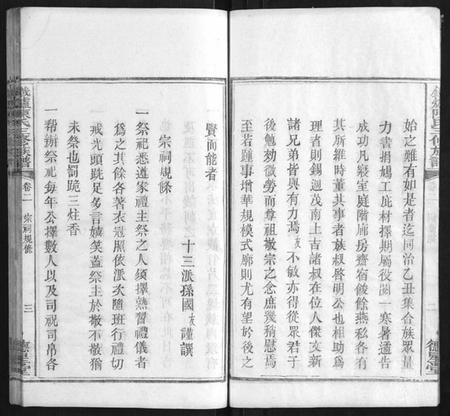 始之難有如是者迄同治乙丑集合族眾量
力書捐鳩工庇材擇期屬役閱一寒暑遹告
成功凡寢室庭階廊房齋宿餕餘燕私各有
其所維時董其事者族叔啓明公也相助為
理者則錫迴茂南上吉諸叔在位人傑文新
諸兄弟皆與有力焉 不敏亦得從眾君子
後勉効微勞而尊祖敬宗之念庶幾稍慰焉
至若踵事增華規模式廓則尤有望於後之
賢而能者
十三派孫國 謹譔
宗祠規條
一祭祀悉遵家禮主祭之人須擇熟習禮儀者
為之其餘各著衣冠照依派次隨班行禮切
戒光頭跣足多言嬉笑蓋祭主於敬不敬猶
未祭也罰跪三炷香
一幇辦祭祀每年公擇數人以及司祝司帛各
卷二 宗祠規條
三